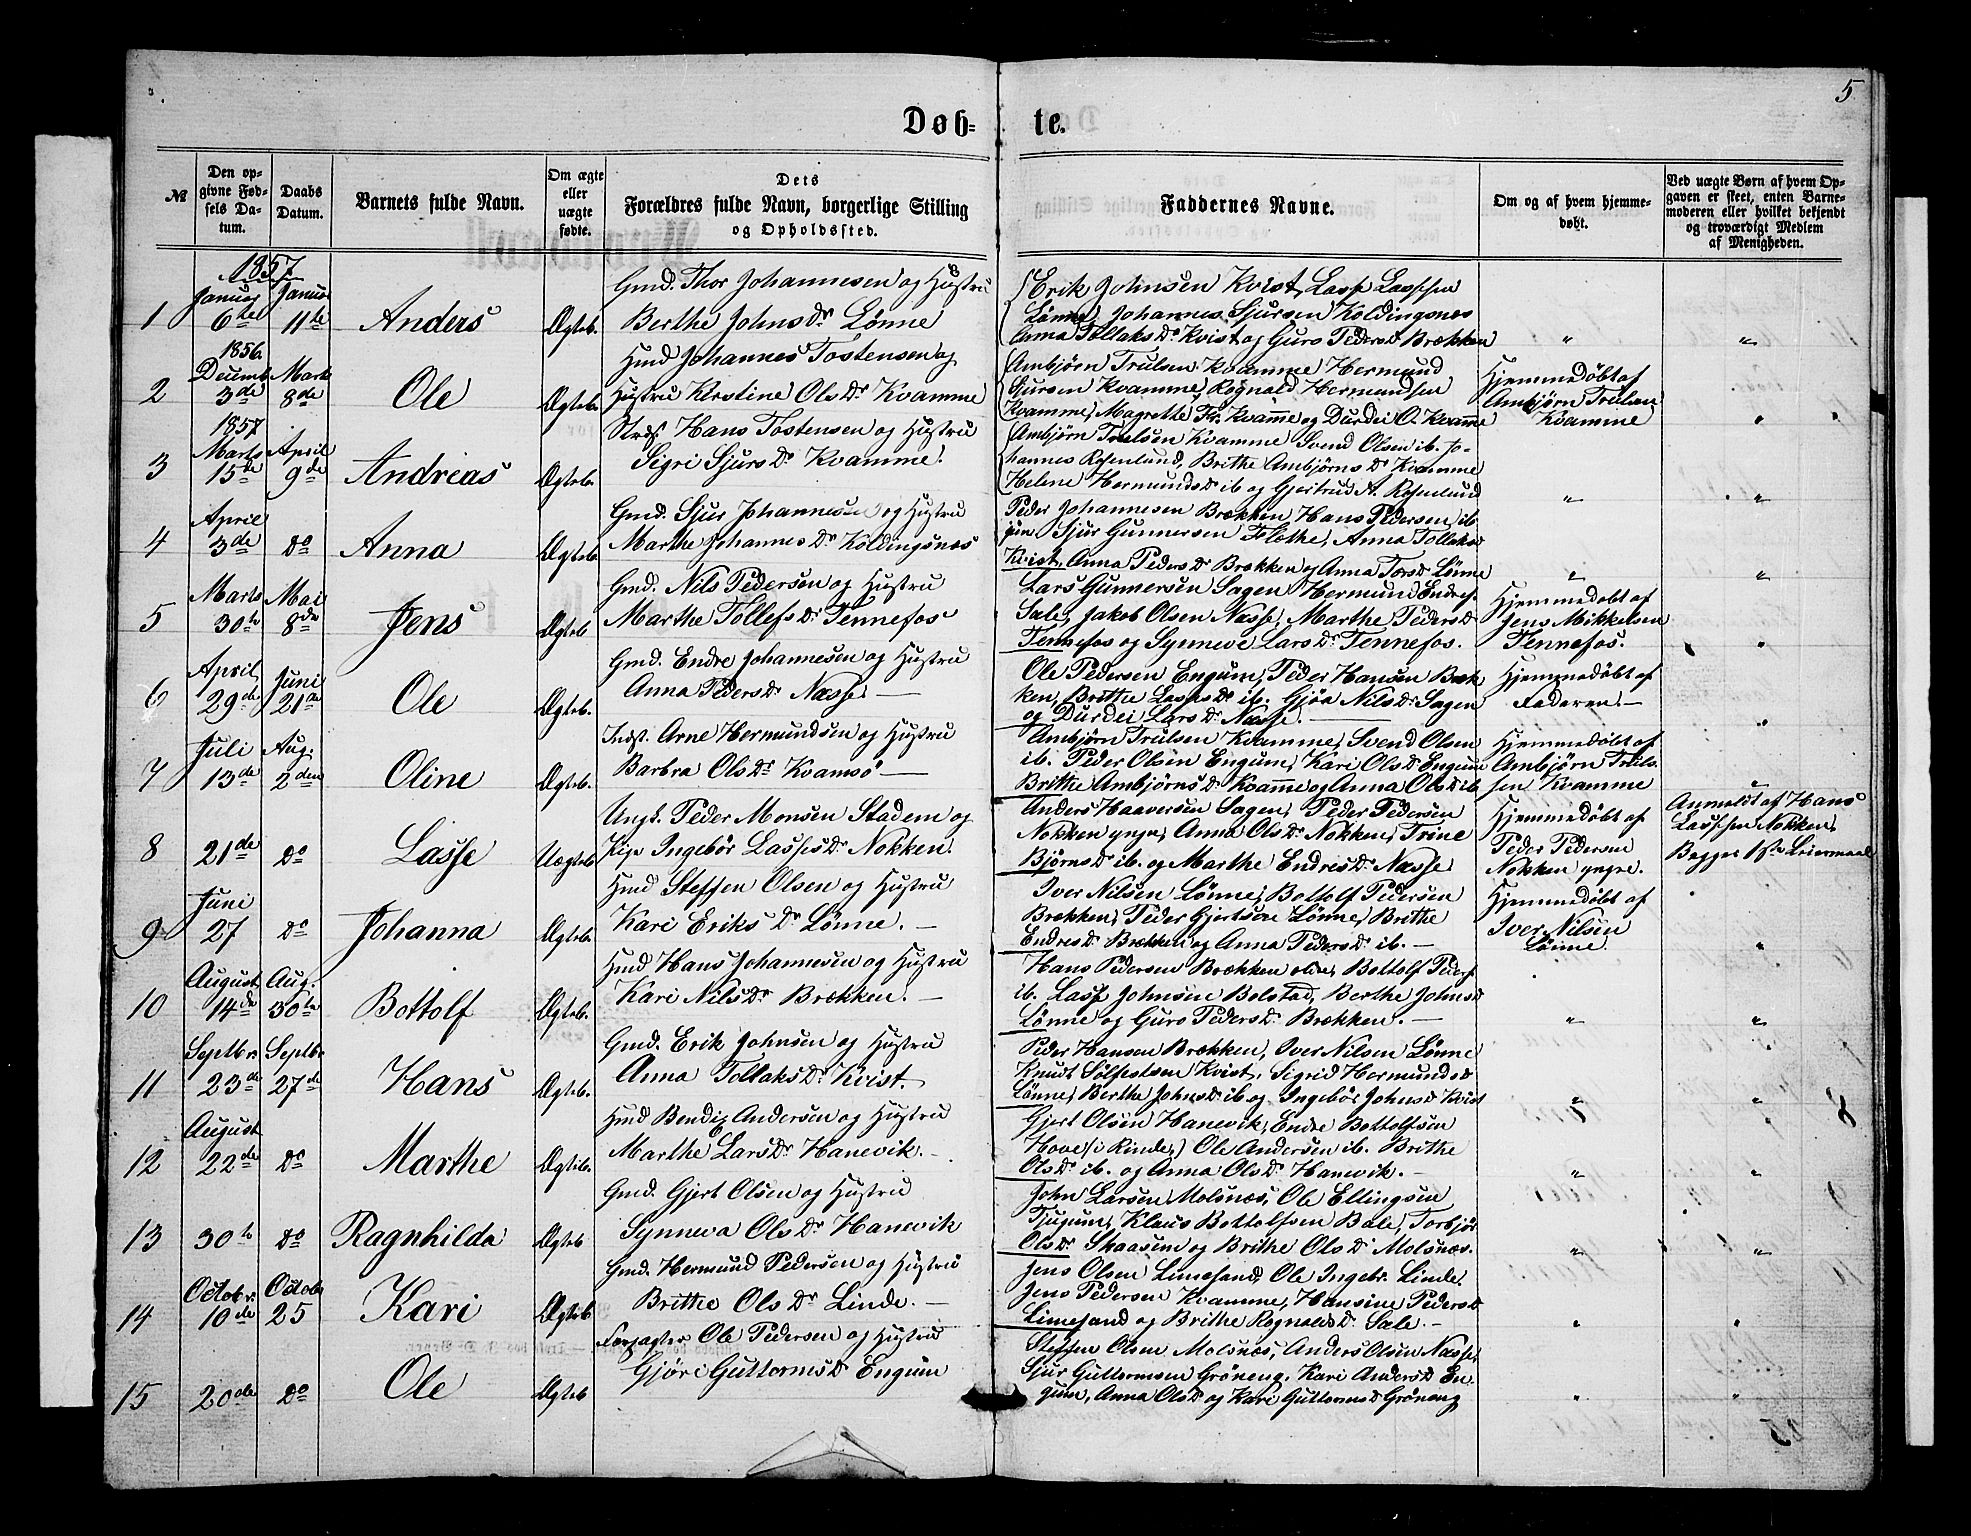 5
Døb=te.
№
Den op-
givne Fød-
sels Da-
tum.
Daabs
Datum.
Barnets fulde Navn.
Om ægte
eller
uægte
fødte.
Dets
Forældres fulde Navn, borgerlige Stilling
og Opholdssted.
Faddernes Navne.
Om og af hvem hjemme-
døbt.
Ved uægte Børn af hvem Op-
gaven er skeet, enten Barne-
moderen eller hvilket bekjendt
og troværdigt Medlem
af Menigheden.
1857
1
Januar
6te
Januar
11te
Anders
Ægteb.
Gmd. Thor Johannesen og Hustru
Berthe Johnsdr Lønne
Erik Johnsen Kvist, Lasse Lassesen
Lønne, Johannes Sjursen Koldingsnæs
Anna Tollaksdr Kvist og Guro Pedersd Brækken
"
"
1856.
2
Decemb.
3de
Marts
8de
Ole
Ægteb.
Hmd Johannes Tostensen og
Hustru Kirstine Olsdr Kvamme
Ambjørn Trulsen Kvamme, Hermund
Sjursen Kvamme, Rognald Hermundsen
Kvamme, Magrethe Fr. Kvamme og Durdei O. Kvamme
Hjemmedøbt af
Ambjørn Trulsen
Kvamme
"
1857
3
Marts
15de
April
9de
Andreas
Ægteb.
Hans Tostensen og Hustru
Sigri Sjursdr Kvamme.
Ambjørn Trulsen Kvamme Svend Olsen ib. Jo-
hannes Rosenlund, Brithe Ambjørnsdr Kvamme
Helene Hermundsdr ib og Gjertrud A. Rosenlund
"
"
4
April
3de
do
Anna
Ægteb.
Gmd. Sjur Johannesen og Hustru
Marthe Johannesdr Koldingsnæs
Peder Johannesen Brækken Hans Pedersen ib
jun Sjur Gunnersen Flethe, Anna Tollaksd
Kvist, Anna Pedersdr Brækken og Anna Torsdr Lønne
"
"
5
Marts
30te
Mai
8de
Jens
Ægteb
Gmd. Nils Pedersen og Hustru
Marthe Tollefsdr Tennefos
Lars Gunnersen Sagen Hermund Endres.
Sale, Jakob Olsen Næsse, Marthe Pedersdr
Tennefos og Synneve Larsdr Tennefos.
Hjemmedøbt af
Jens Mikkelsen
Tennefos.
"
6
April
29de
Juni
21de
Ole
Ægteb.
Gmd. Endre Johannesen og Hustru
Anna Pedersdr Næsse. —
Ole Pedersen Engum, Peder Hansen Bræk-
ken, Brithe Lassesdr ib. Gjøa Nilsdr Sagen
og Durdei Larsdr Næsse. —
Hjemmedøbt af
Faderen. —
"
7
Juli
13de
Aug.
2den
Oline
Ægteb.
Indst. Arne Hermundsen og Hustru
Barbra Olsdr Kvamsø —
Ambjørn Trulsen Kvamme, Svend Olsen
ib. Peder Olsen Engum, Kari Olsd Engum
Brithe Ambjørnsdr Kvamme og Anna Olsd ib
Hjemmedøbt af
Ambjørn Trul-
sen Kvamme
"
8
21de
do
Lasse
Uægteb
Ungk. Peder Monsen Stadem og
Pige Ingebør Lassesdr Nokken.
Anders Haaversen Sagen, Peder Pedersen
Nokken yngre, Anna Olsdr Nokken, Trine
Bjørnsdr ib. og Marthe Endresdr Næsse
Hjemmedøbt af
Peder Pedersen
Nokken yngre.
Anmeldt af Hans
Lassesen Nokken.
Begges 1ste Leiermaal
9
Juni
27
do
Johanna
Ægteb.
Hmd Steffen Olsen og Hustru
Kari Eriksdr Lønne. —
Iver Nilsen Lønne, Bottolf Pedersen
Brækken, Peder Gjertsen Lønne, Brithe
Endresdr Brækken og Anna Pedersdr ib. —
Hjemmedøbt af
Iver Nilsen
Lønne
"
10
August
14de
Aug.
30te
Bottolf
Ægteb.
Hmd Hans Johannesen og Hustru
Kari Nilsdr Brækken. —
Hans Pedersen Brækken eldre, Bottolf Peders.
ib. Lasse Johnsen Bolstad, Berthe Johnsd
Lønne og Guro Pedersdr Brækken. —
"
"
11
Septbr.
23de
Septb.
27de
Hans
Ægteb.
Gmd. Erik Johnsen og Hustru
Anna Tollaksdr Kvist.
Peder Hansen Brækken, Iver Nilsen Lønne
Knudt Sølfestsen Kvist, Sigrid Hermundsd
Lønne, Berthe Johnsd ib og Ingebør Johnsd Kvist
"
"
12
August
22de
do
Marthe
Ægteb.
Hmd Bendix Andersen og Hustru
Marthe Larsdr Hanevik. —
Gjert Olsen Hanevik, Endre Bottolfsen
Hove (i Rinde,) Ole Andersen ib. Brithe
Olsdr ib. og Anna Olsdr Hanevik. —
"
"
13
30te
do
Ragnhilda
Ægteb
Gmd. Gjert Olsen og Hustru
Synneva Olsdr Hanevik
John Larsen Molsnæs, Ole Ellingsen
Tjugum, Klaus Bottolfsen Bale, Torbjør
Olsdr Skaasem og Brithe Olsdr Molsnæs.
"
"
14
Octobr.
10de
Octobr
25
Kari
Ægteb
Gmd. Hermund Pedersen og Hustru
Brithe Olsdr Linde. —
Jens Olsen Limesand, Ole Ingebr. Linde.
Jens Pedersen Kvamme, Hansine Pedersd
Limesand og Brithe Rognaldsdr Sale. —
"
"
15
20de
do
Ole
Ægteb
Forpagter Ole Pedersen og Hustru
Gjøri Guttormsdr Engum
Steffen Olsen Molsnæs, Anders Olsen Næsse,
Sjur Guttormsen Grøneng, Kari Andersd En-
gum, Anna Olsd og Kari Guttormsd Grøneng
"
"